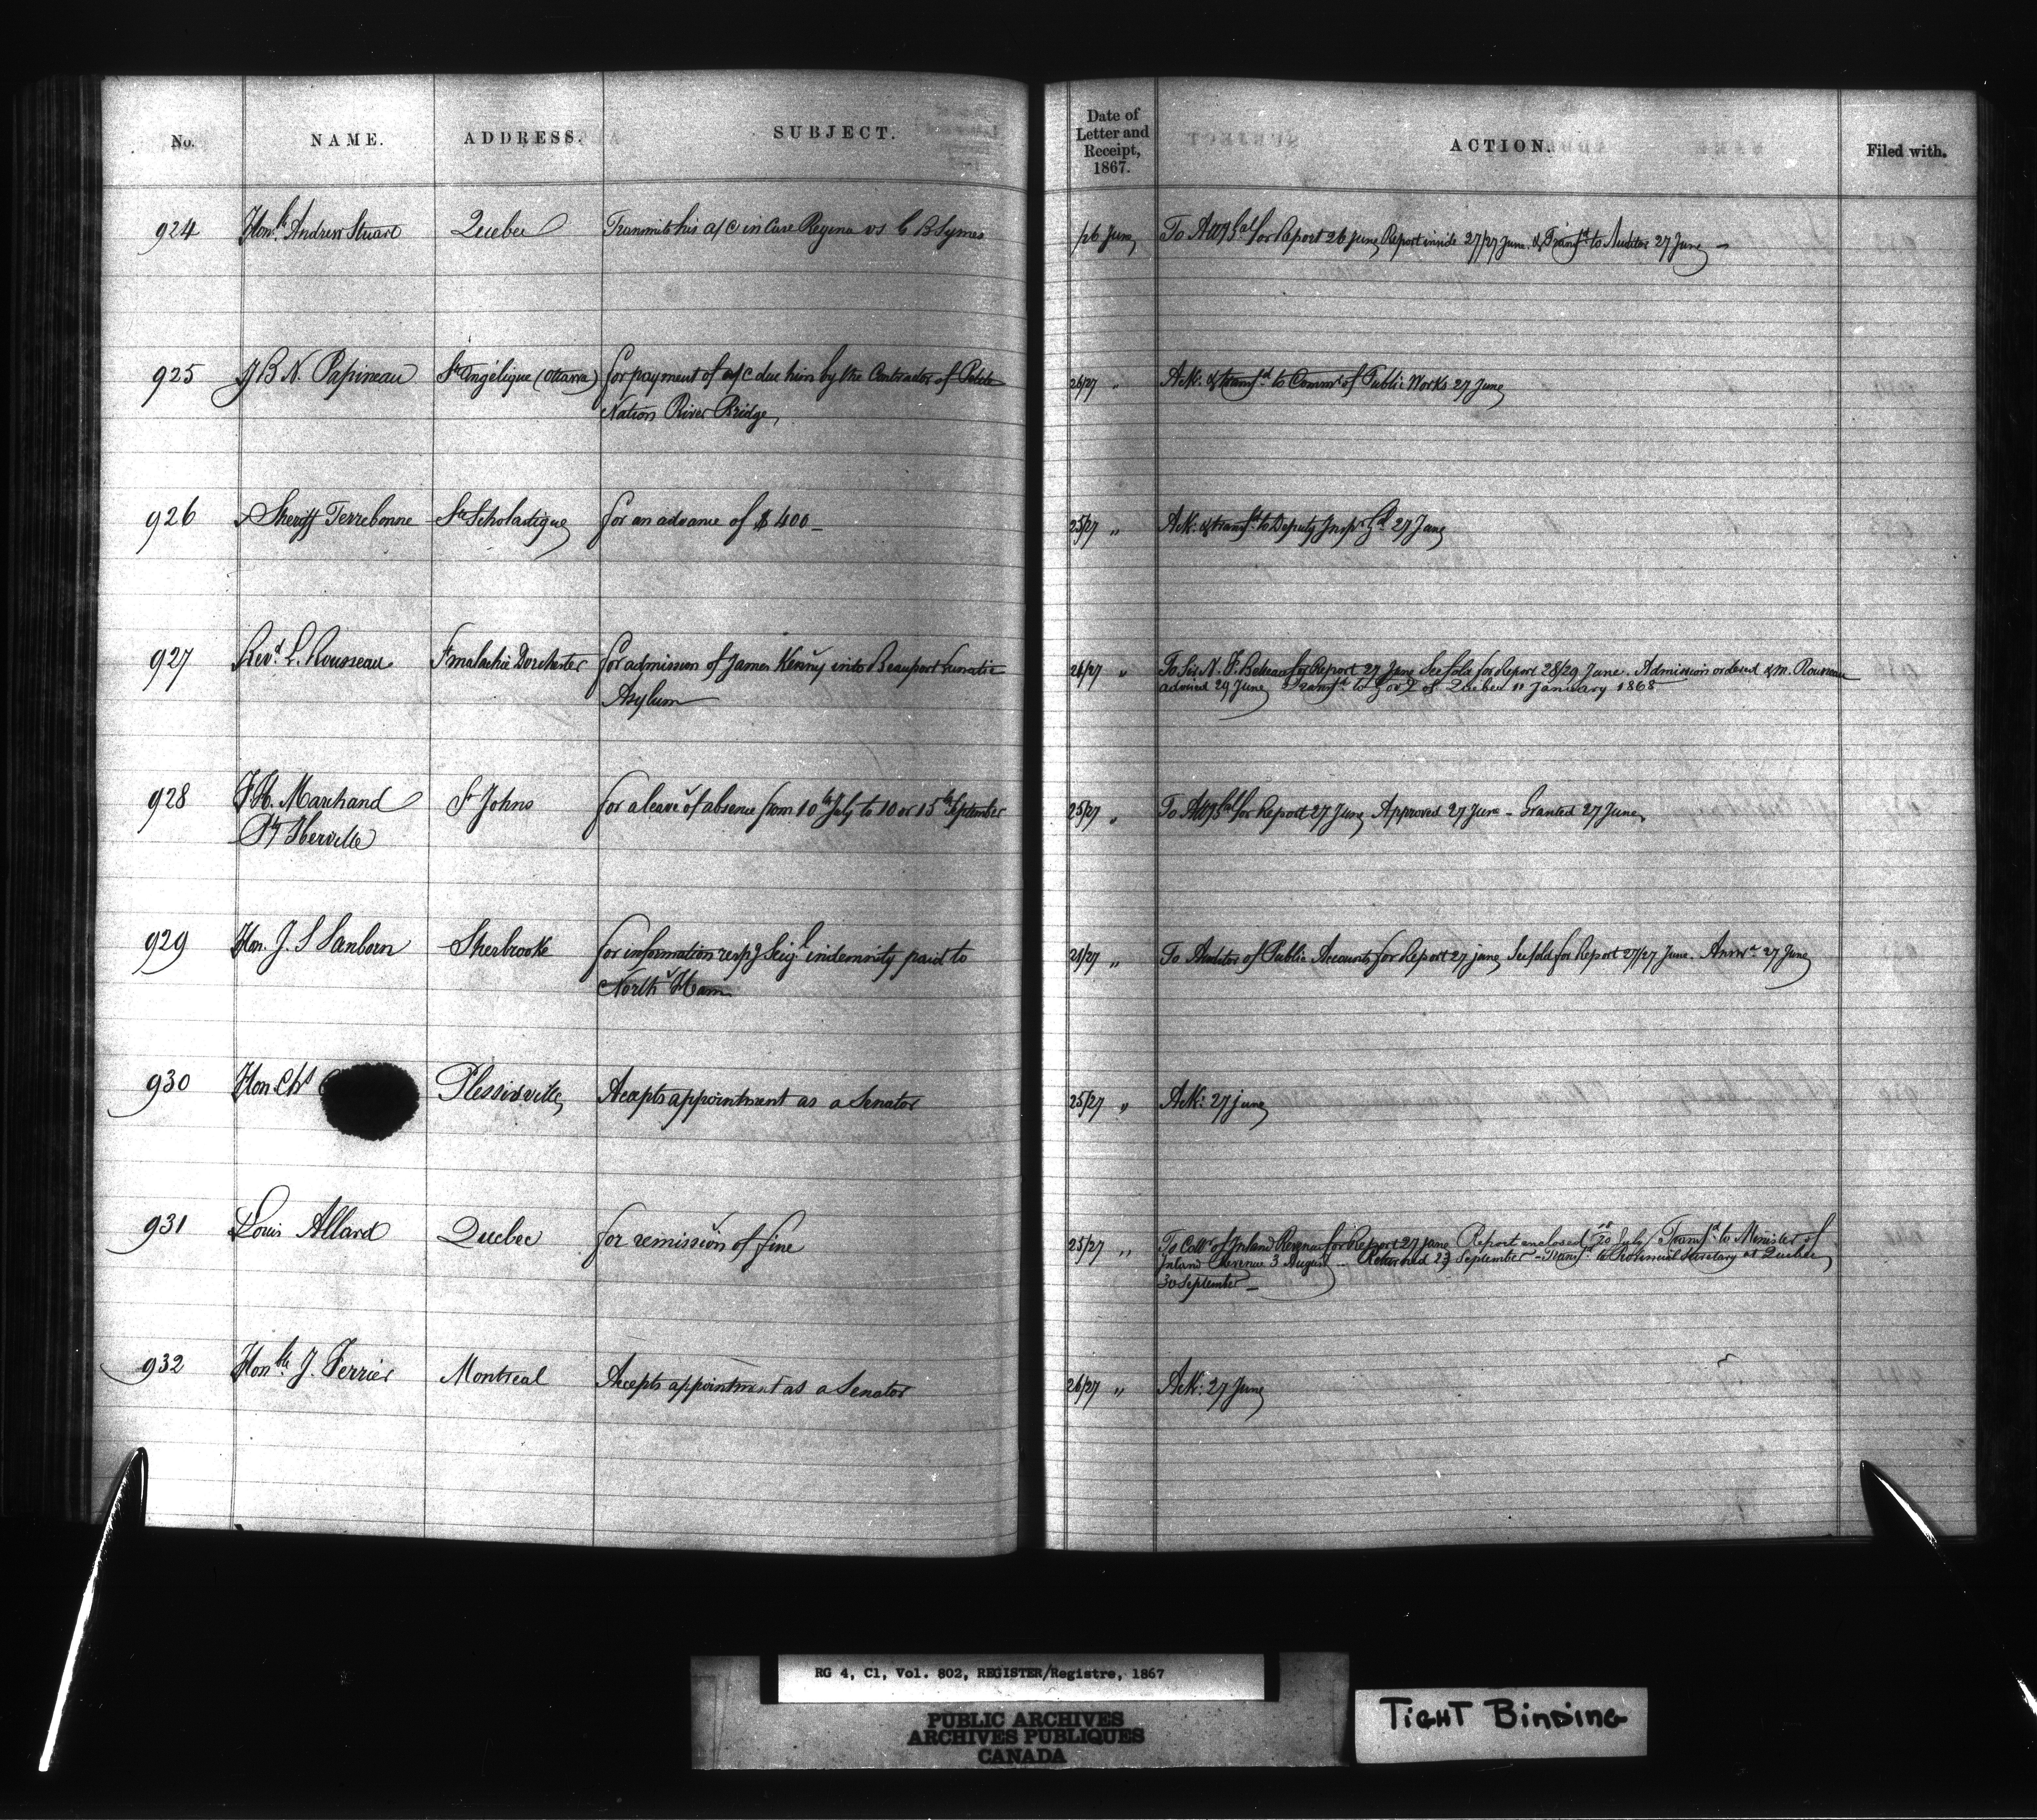 No. NAME. ADDRESS. SUBJECT. Date of Letter and Receipt, 1867. ACTION. Filed with.
924 Honble Andrew Stuart Quebec Transmits his a/c in Case Regina vs C B Symes /26 June To Atty Genl for Report 26 June Report inside 27/27 June. & Transfd to Auditor 27 June
925 J B N. Papineau Ste Angélique (Ottawa) for payment of a/c due him by the Contractor of Petite 26/27 " Ack: & transfd to Commr of Public Works 27 June
Nation River Bridge,
926 Sheriff Terrebonne Ste Scholastique for an advance of $400 25/27 " Ack: & transfd to Deputy Inspr Gl 27 June
927 Revd L. Rousseau St Malachie Dorchester for admission of James Kenny into Beauport Lunatic 26/27 " To Sir N. F. Belleau for Report 27 June See fold for Report 28/29 June. Admission ordered & M. Rousseau
Asylum advised 29 June Transfd to Govt of Quebec 11 January 1868
928 F. H. Marchand St Johns for a leave of absence from 10th July to 10 or 15th September 25/27 " To Atty Genl for Report 27 June Approved 27 June - Granted 27 June
Py Iberville
929 Hon. J. S Sanborn Sherbrooke for information respg Seigl indemnity paid to 25/27 " To Auditor of Public Accounts for Report 27 june See fold for Report 27/27 June. Answd 27 June
North Ham
930 Hon Chs Plessisville Accepts appointment as a Senator 25/27 " Ack: 27 june
931 Louis Allard Quebec for remission of fine 25/27 " To Collr of Inland Revenue for Report 27 june Report enclosed July Transfd to Minister of
Inland Revenue 3 August Returned 23 September - Transfd to Provincial Secretary at Quebec
30 September
932 Honble J. Ferrier Montreal Accepts appointment as a Senator 26/27 " Ack: 27 June
RG 4, C1, Vol. 802, REGISTER/Registre, 1867
PUBLIC ARCHIVES
ARCHIVES PUBLIQUES
CANADA
TIGHT BINDING